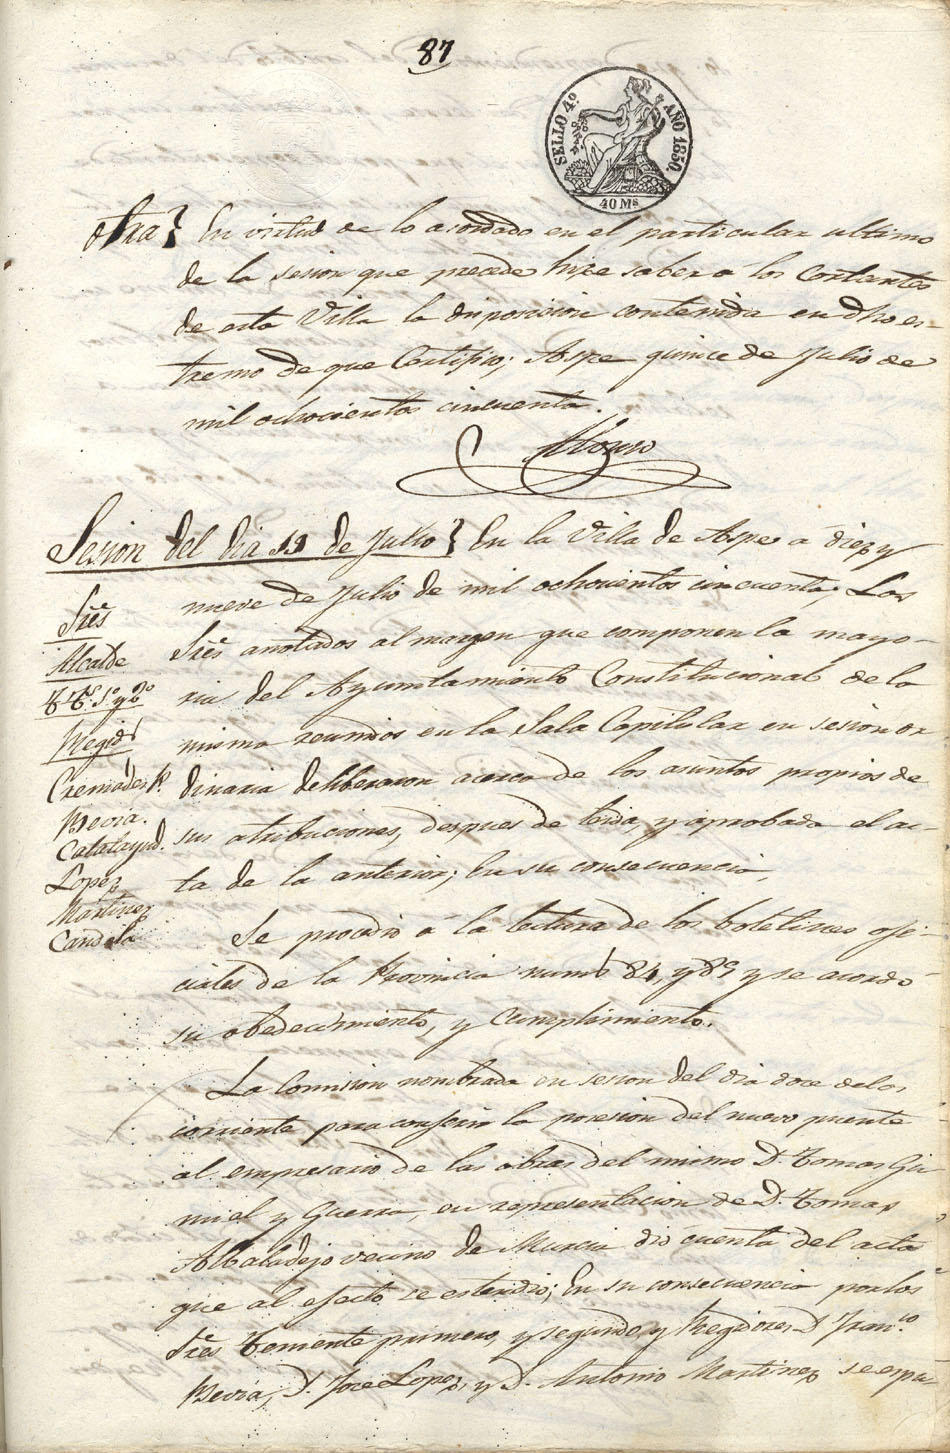 87
SELLO 4º AÑO 1850.
40 Ms
Otra} En virtud de lo acordado en el particular ultimo
de la sesion que precede hice saber á los Cortantes
de esta Villa la disposicion contenida en dho es-
tremo de que Certifico; Aspe quince de Julio de
mil ochocientos cincuenta.
Alonso
Sesion del dia 19 de Julio} En la Villa de Aspe a diez y
nueve de Julio de mil ochocientos cincuenta; Los
Sres anotados al margen que componen la mayo-
ria del Ayuntamiento Constitucional de la
misma reunidos en la Sala Capitular en sesion or
dinaria deliberaron acerca de los asuntos propios de
sus atribuciones, despues de leida, y aprobada el ac-
ta de la anterior; En su consecuencia,
Sres
Alcalde
Ttes 1º y 2º
Regids
Cremades P.
Mevia.
Calatayud.
Lopez
Martinez
Candela
Se procedio á la lectura de los boletines ofi-
ciales de la Provincia nums 84, y 85 y se acordó
su obedecimiento, y cumplimiento.
La Comision nombrada en sesion del dia doce de los
corriente para conferir la posesion del nuevo puente
al empresario de las obras del mismo D. Tomas Gu-
miel y Guerra, en representacion de D. Tomas
Albaladejo vecino de Murcia dió cuenta del acta
que al efecto se estendio; En su consecuencia por los
Sres Teniente primero, y segundo, y Regidores D. Franco.
Mevia, D. Jose Lopez, y D. Antonio Martinez se espu-